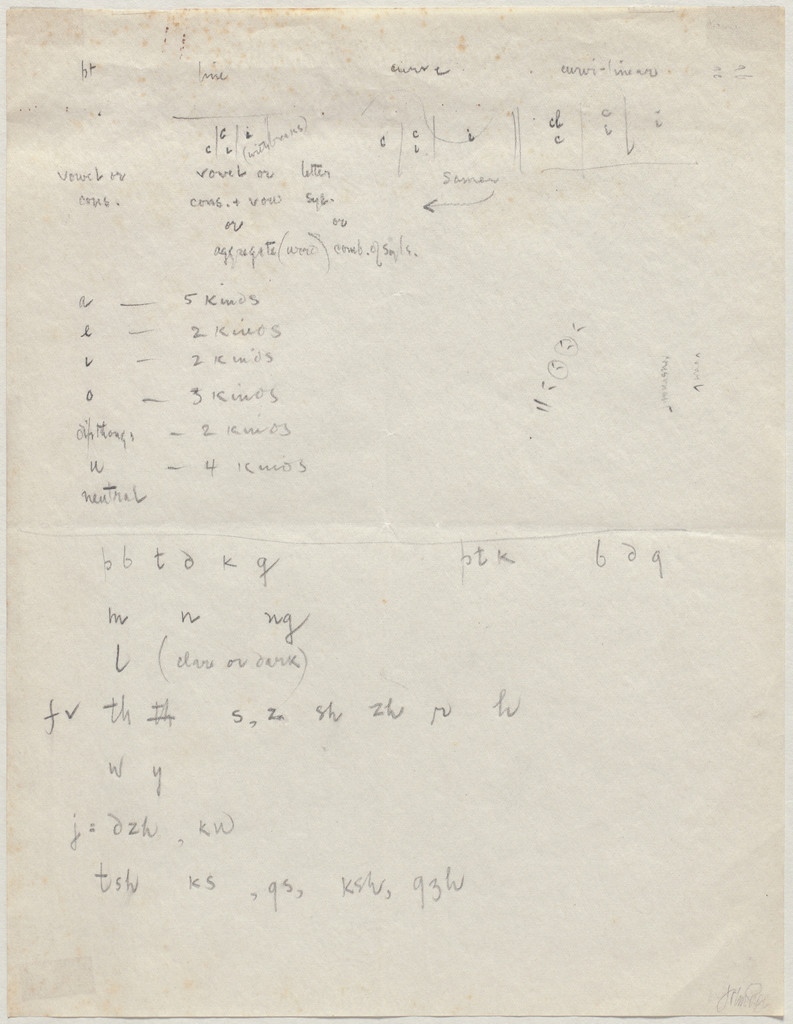 pt line curve curvi-linear
c | c i | i (with breaks) c | c i | i || cl c | c i | i
vowel or vowel or letter same
cons. cons. + vow syl.
or or
aggregate (word) comb. of syls.
a — 5 kinds
e — 2 kinds
i — 2 kinds
o — 3 kinds
dipthongs — 2 kinds
u — 4 kinds
neutral
p b t d k g p t k b d g
m n ng
l (clear or dark)
f v th th s, z sh zh r h
w y
j = dzh, kw
tsh ks, gs, ksh, gzh